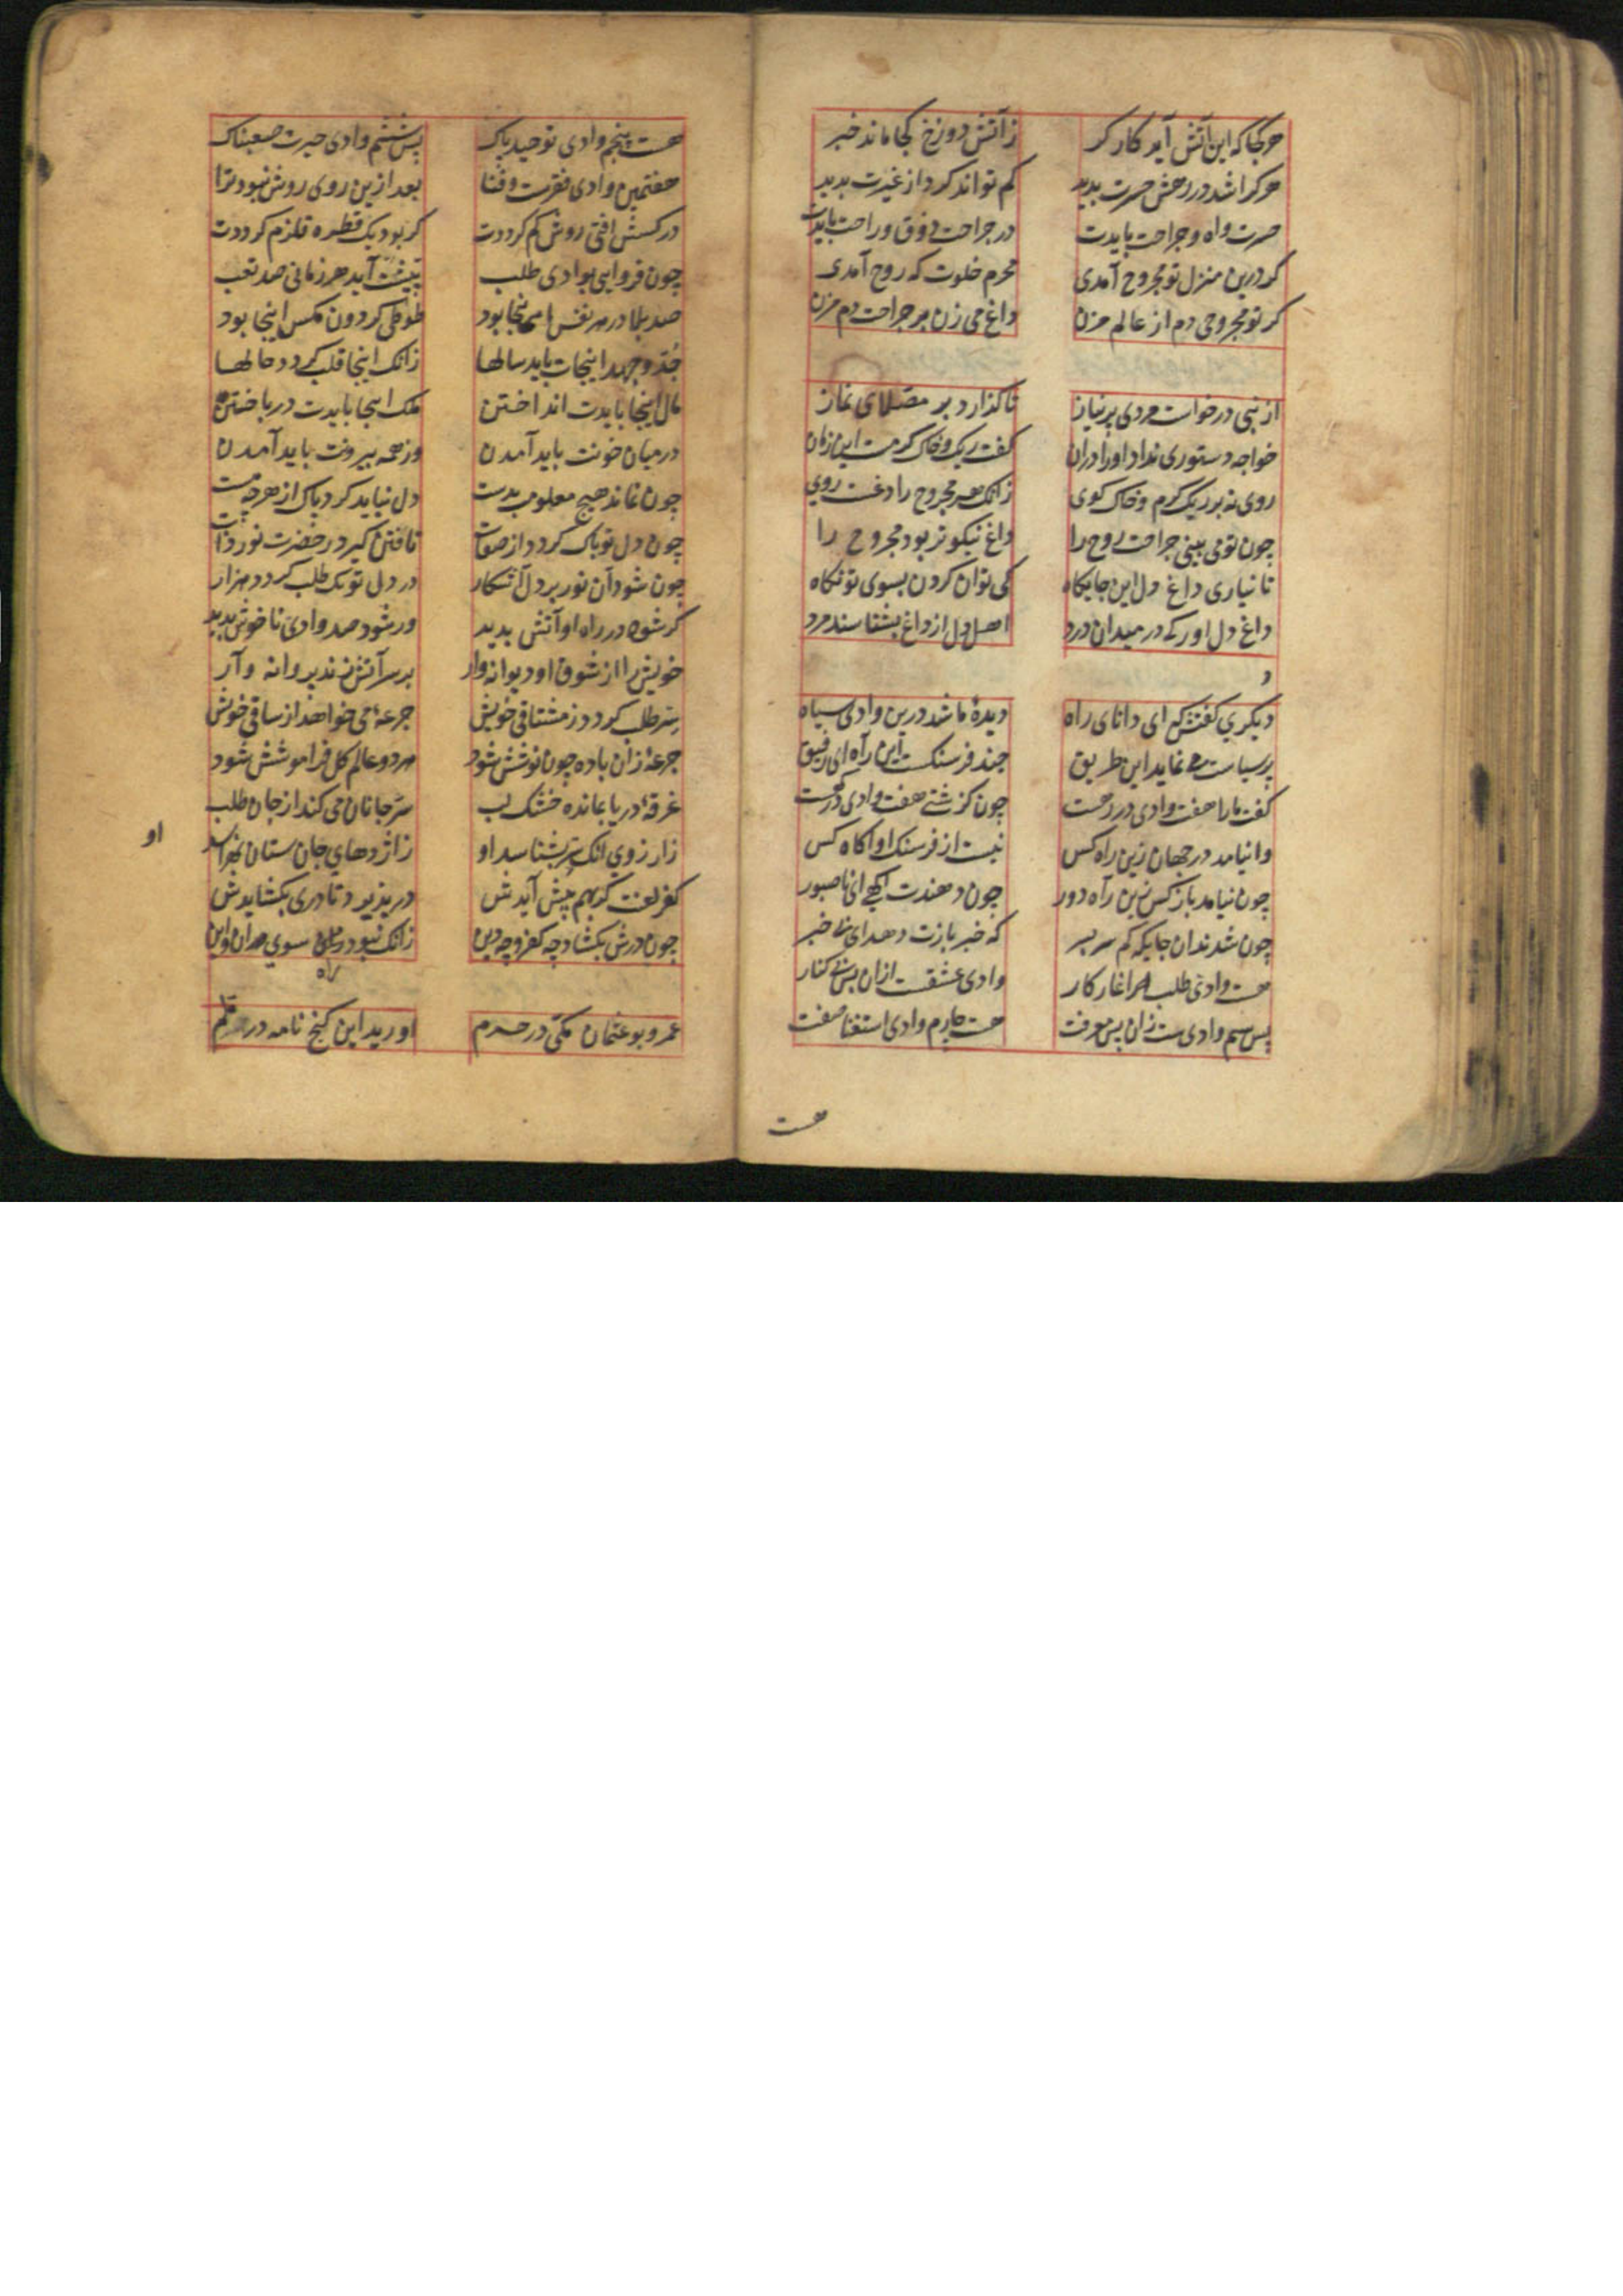 هرکجا که این آتش آید کارکر زآتش دوزخ کجا ماند خبر
هرکرا شد در رهش حسرت بدید کم تواند کرد از غیرت بدید
حسرت واه و جراحت بایدت در جراحت ذوق و راحت بایدت
کر درین منزل تو مجروح آمدی محرم خلوت که روح آمدی
کر تو مجروحی دم از عالم مزن داغ می زن بر جراحت دم مزن
از نبی درخواست مردی پرنیاز تا کذارد بر مصلای نماز
خواجه دستوری نداد اورا دران کفت ریک و خاک کرمست این زمان
روی نه بر ریک کرم و خاک کوی زانک هر مجروح را داغست روی
چون تو می بینی جراحت روح را داغ نیکوتر بود مجروح را
تا نیاری داغ دل این جایکاه کی توان کردن بسوی تو نکاه
داغ دل اور که در میدان درد اهل دل از داغ بشناسند مرد
دیکری کفتش که ای دانای راه دیدهٔ ما شد درین وادی سیاه
پر سیاست می نماید این طریق چند فرسنکست این راه ای رفیق
کفت مارا هفت وادی در رهست چون کزشتی هفت وادی درکهست
وا نیامد در جهان زین راه کس نیست از فرسنک او اکاه کس
چون نیامد باز کس زین راه دور چون دهندت اکهی ای ناصبور
چون شدند ان جایکه کم سر بسر که خبر بازت دهد ای بی خبر
هست وادی طلب اغاز کار وادی عشقست ازان پس بی کنار
پس سیم وادیست زان پس معرفت هست چارم وادی استغنا صفت
هست
هست پنجم وادی توحید پاک پس ششم وادی حیرت صعبناک
هفتمین وادی فقرست و فنا بعد ازین روی روش نبود ترا
در کشش افتی روش کم کرددت کر بود یک قطره قلزم کرددت
چون فرو ایی بوادی طلب پیشت آید هر زمانی صد تعب
صد بلا در هر نفس اینجا بود طوطی کردون مکس اینجا بود
جد و جهد اینجات باید سالها زانک اینجا قلب کردد حالها
مال اینجا بایدت انداختن ملک اینجا بایدت در باختن
در میان خونت باید آمدن وز همه بیرونت باید آمدن
چون نماند هیچ معلومت بدست دل نباید کرد پاک از هرچه هست
چون دل تو پاک کردد از صفات تافتن کیرد ز حضرت نور ذات
چون شود آن نور بر دل آشکار در دل تو یک طلب کردد هزار
کر شود در راه او آتش بدید ور شود صد وادی ناخوش بدید
خویش را از شوق او دیوانه وار بر سر آتش زند پروانه وار
سر طلب کردد ز مشتاقی خویش جرعهٔ می خواهد از ساقی خویش
جرعهٔ زان باده چون نوشش شود هر دو عالم کل فراموشش شود
غرقهٔ دریا بمانده خشک لب سر جانان می کند از جان طلب
زارزوی انک سر بشناسد او زاژدهای جان ستان نهراسد
او
کفر لعنت کر بهم پیش آیدش در پذیرد تا دری بکشایدش
چون درش بکشاد چه کفر و چه دین زانک نبود سوی در آن و این
عمرو بو عثمان مکی در حرم اورید این کنج نامه در قلم